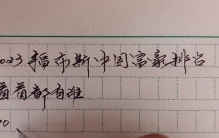 023福布斯中国富豪排名
看看都有谁